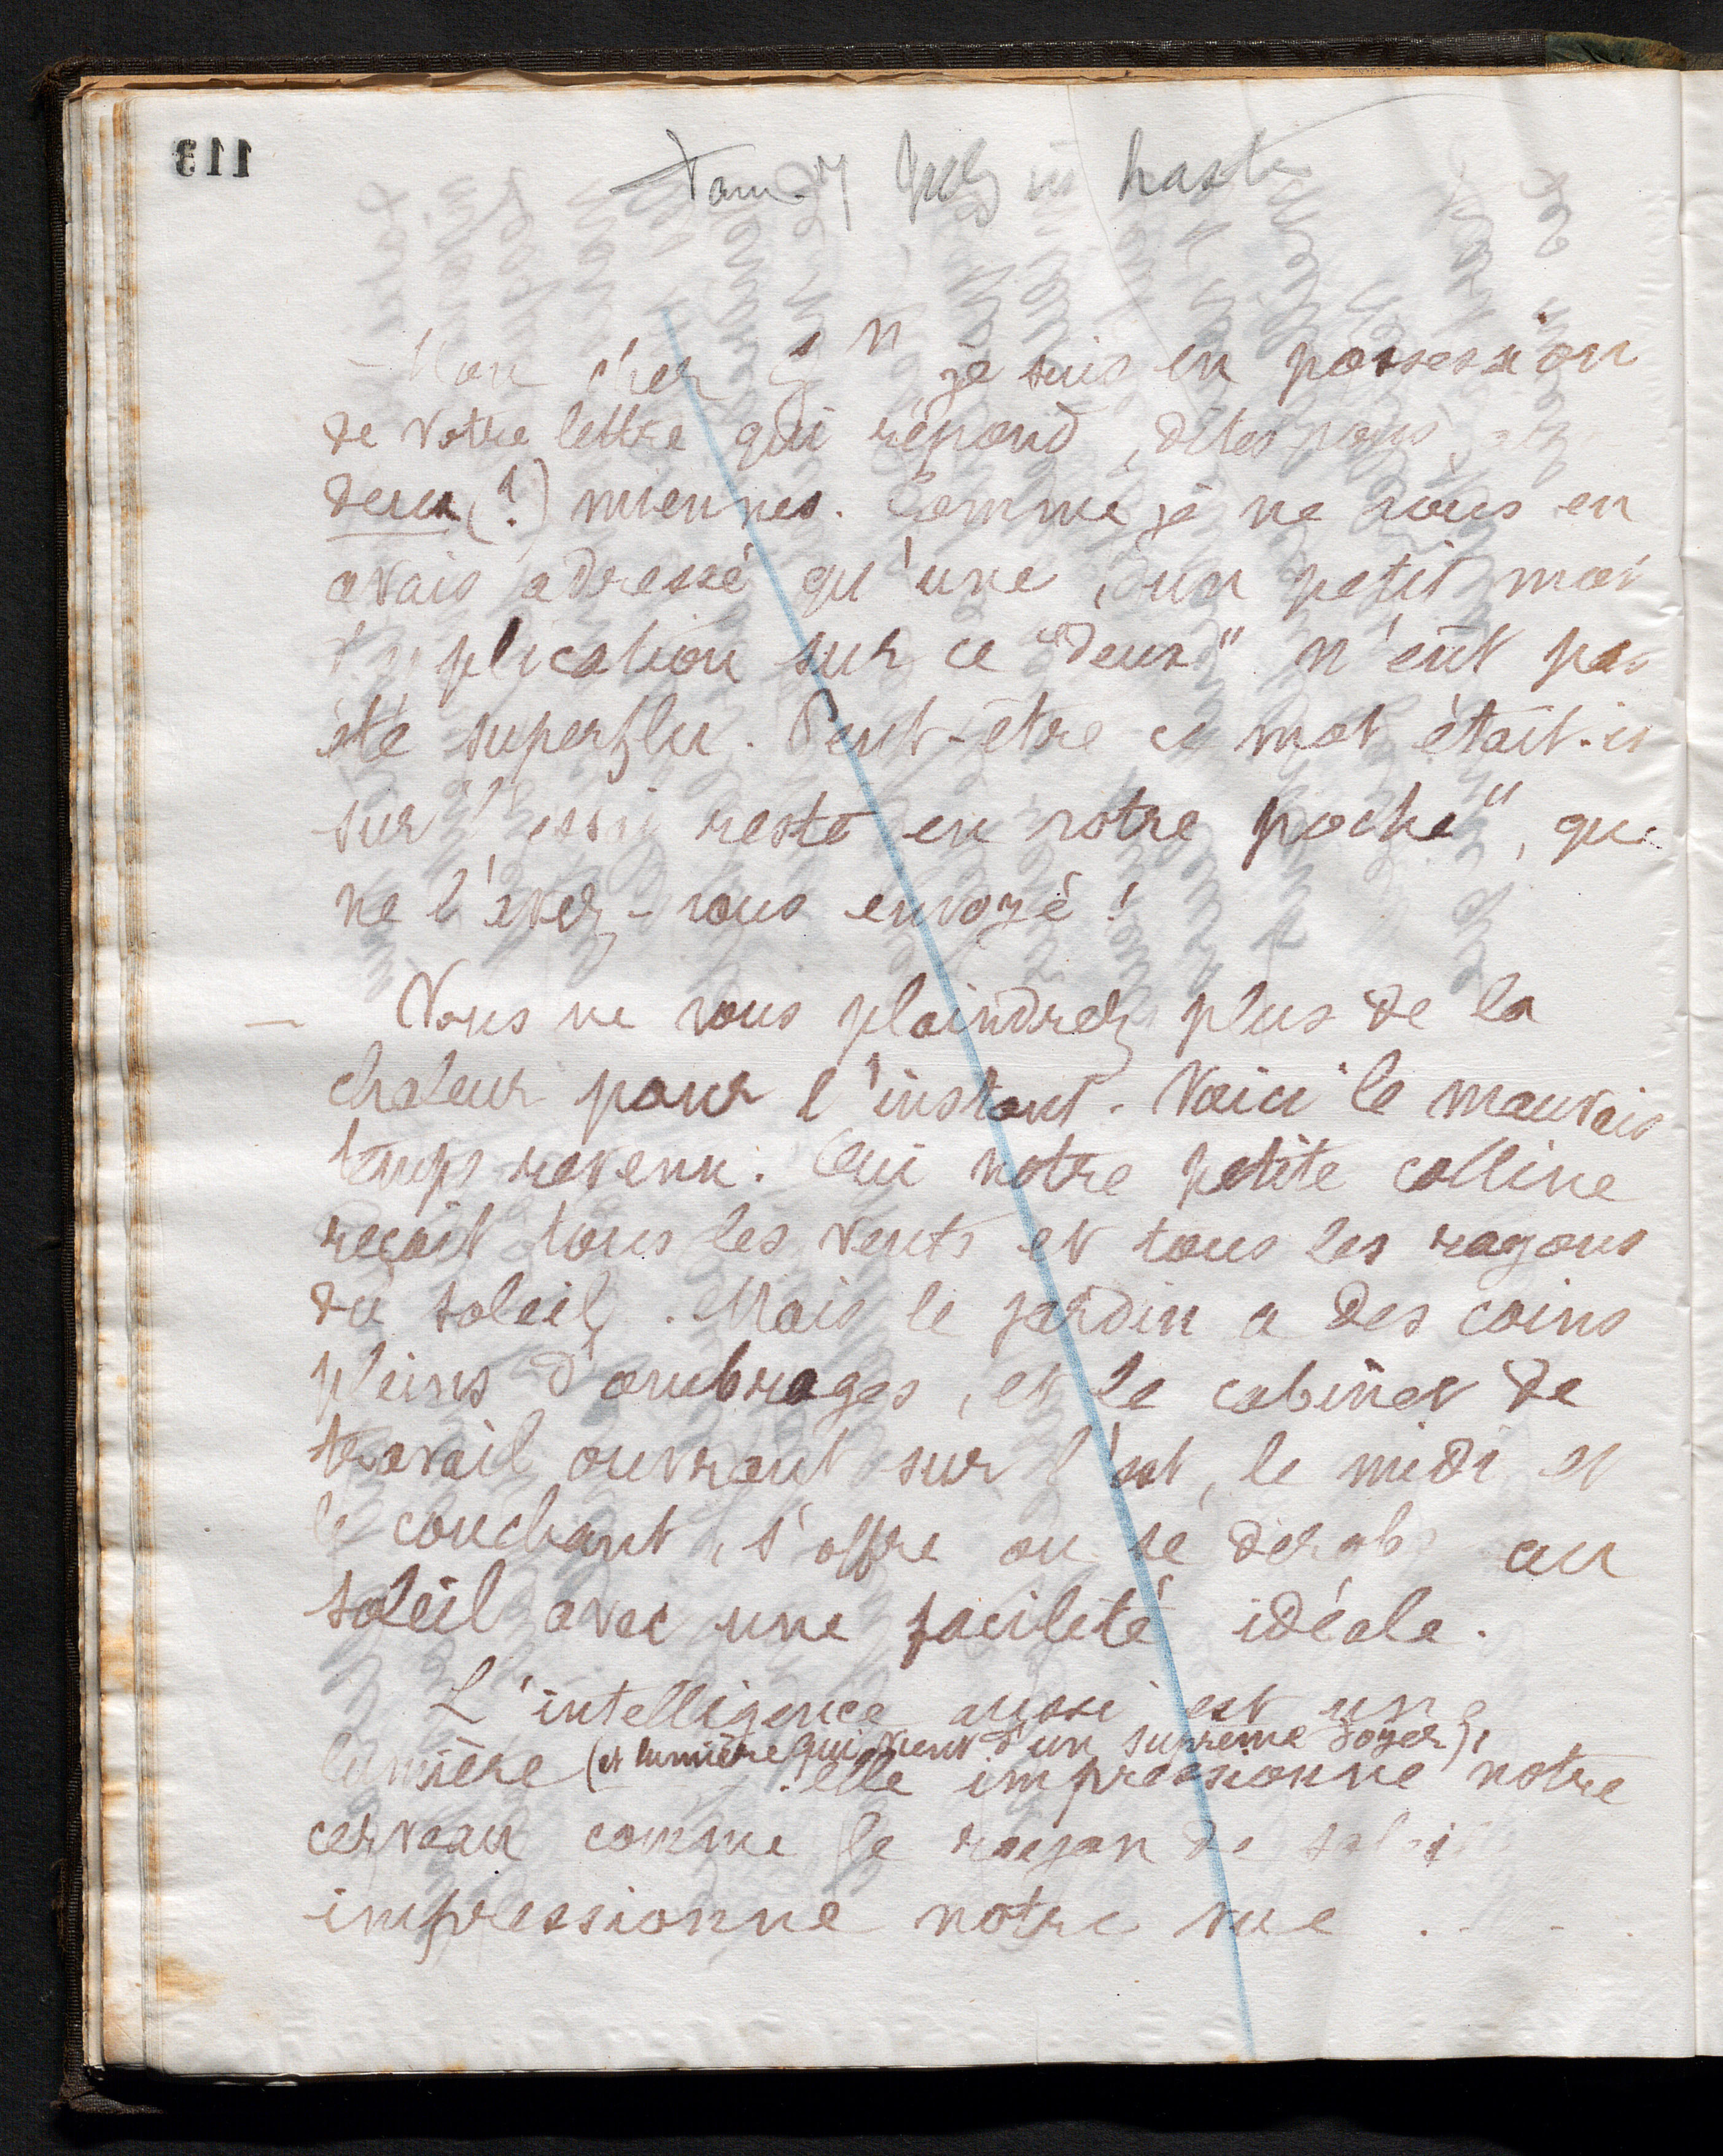 113
haste
Mon cher G n, je suis en possession
de votre lettre qui répond, dites-vous, à
deux (?) miennes. Comme je ne vous en
avais adressé qu'une, un petit mot
d'explication sur ce "deux" n'eût pas
été superflu. Peut-être ce mot était-il
sur l'essai resté en votre poche", que
ne l'avez-vous envoyé!
— Vous ne vous plaindrez plus de la
chaleur pour l'instant. Voici le mauvais
temps revenu. Oui notre petite colline
reçoit tous les vents et tous les rayons
du soleil. Mais le jardin a des coins
pleins d'ombrages, et le cabinet de
travail ouvrant sur l'est, le midi et
le couchant, s'offre ou se dérobe au
soleil avec une facilité idéale.
L'intelligence aussi est une
lumière (et lumière qui vient d'un suprême foyer),
elle impressionne notre
cerveau comme le rayon de soleil
impressionne notre vue . - .